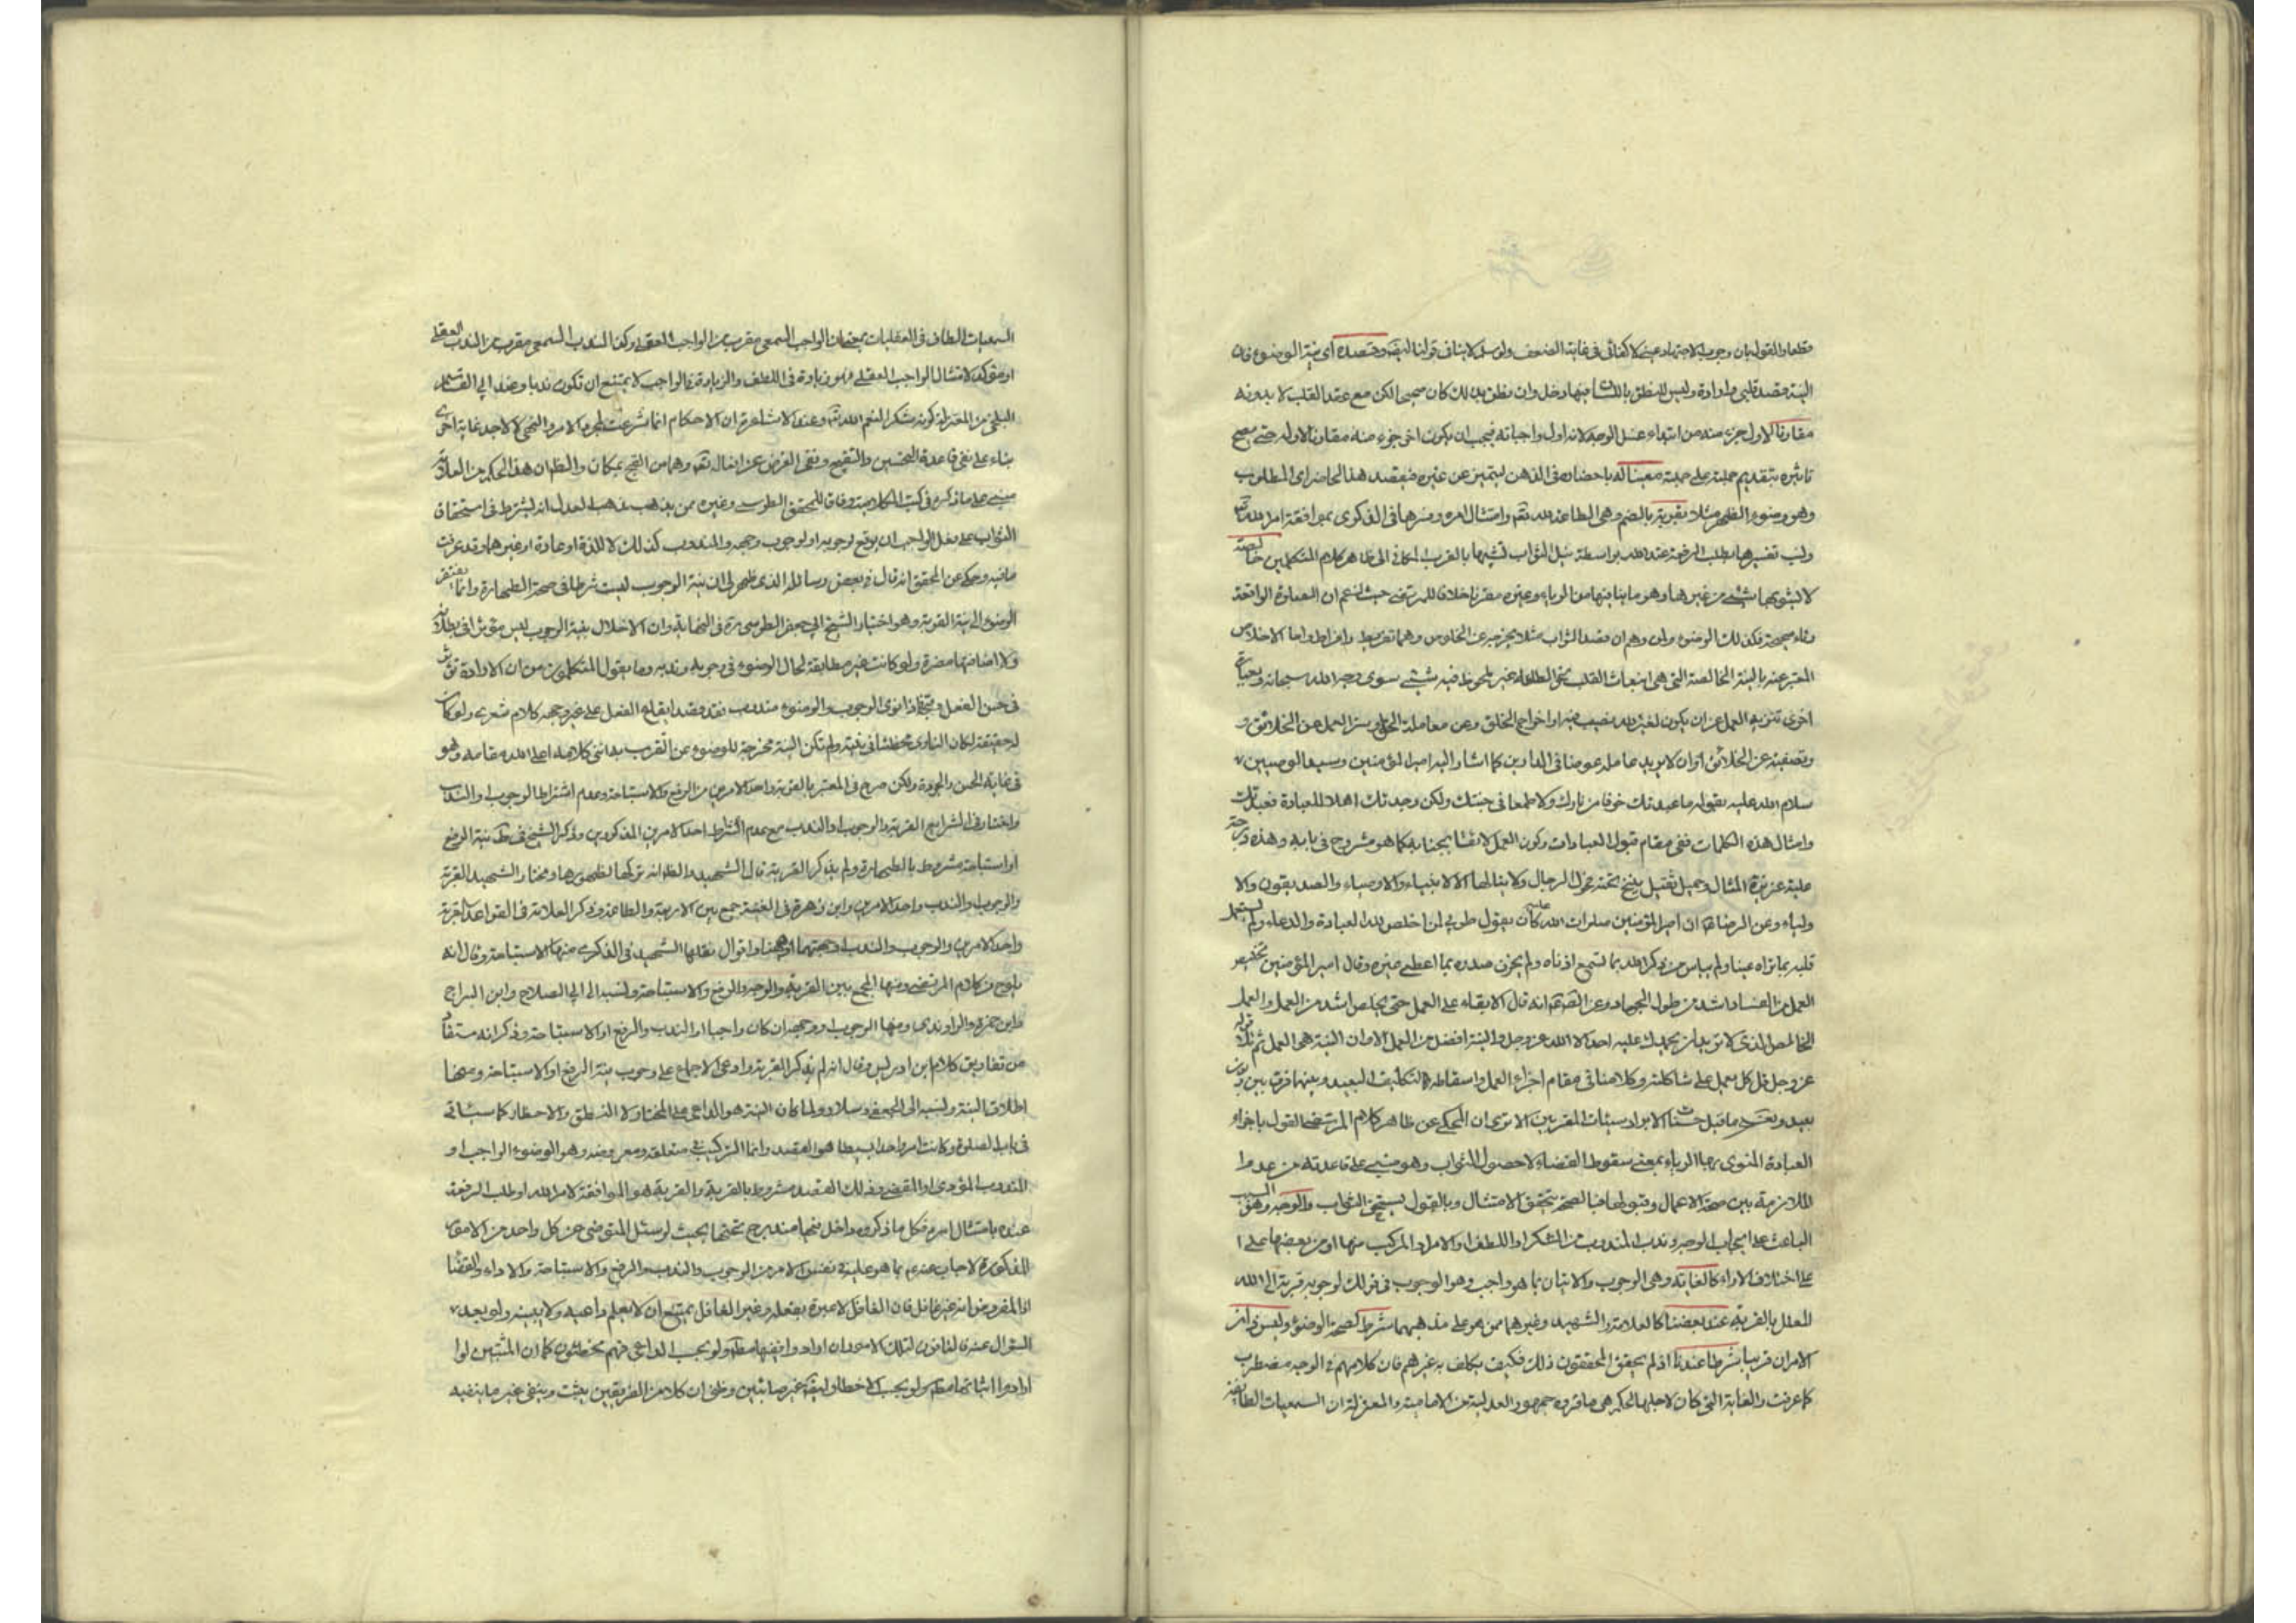 قطعا والقول بان وجوب الاجتهاد عينى لا كفائى فى غاية الضعف ولو سلم لا ينافى قولنا ليفه وقصده اى نية الوضوء فان
النية قصد قلبى وارادة وليس للنطق باللسان فيها دخل وان نطق بذلك كان صحيحا لكن مع عقد القلب لا بدونه
مقارنا لاول جزء منه من ابتداء غسل الوجه لانه اول واجباته فيجب ان يكون اخر جزء منه مقارنا لاوله حتى يصح
تاثيره بتقديم جملته على جملته معينا له باحضاره فى الذهن ليتميز عن غيره فيقصد هذا الحاضر اى المطلوب
وهو وضوء الظهر مثلا بقربة بالضم وهى الطاعة لله تعالى وامتثال امره وفسرها فى الذكرى بموافقة امر الله تعالى
تفسيرها بطلب الرفعة عند الله بواسطة نيل الثواب تشبيها بالقرب المكانى الى ظاهر كلام المتكلمين خالصة
لا يشوبها شئ من غيرها وهو ما ينافيها من الرياء وغيره خلافا للمرتضى حيث زعم ان العبادة الواقعة
رياء صحيحة فكذلك الوضوء ولمن وهم ان قصد الثواب مثلا يخرجه عن الخلوص وهما تفريط وافراط واما الاخلاص
المعتبر عنه بالنية الخالصة التى هى انبعاث القلب نحو الطاعة غير ملحوظ فيه شئ سوى وجه الله سبحانه وبعبارة
اخرى تنزيه العمل عن ان يكون لغير الله نصيب فيه او اخراج الخلق عن معاملة الحق او ستر العمل عن الخلائق و
وتصفيته عن العلائق او ان لا يريد عامله عوضا فى الدارين كما اشار اليه امير المؤمنين وسيد الوصيين
سلام الله عليه بقوله ما عبدتك خوفا من نارك ولا طمعا فى جنتك ولكن وجدتك اهلا للعبادة فعبدتك
وامثال هذه الكلمات ففى مقام قبول العبادات وكون العمل لائقا بجنابه كما هو مشروح فى بابه وهذه درجة
علية عزيزة المثال وحمل ثقيل ينيخ تحته بزل الرجال ولا ينالها الا الانبياء والاوصياء والصديقون والا
ولياء وعن الرضا ان امير المؤمنين صلوات الله عليه كان يقول طوبى لمن اخلص لله العبادة والدعاء ولم يشتغل
قلبه بما تراه عيناه ولم ينس ذكر الله بما تسمع اذناه ولم يحزن صدره بما اعطى غيره وقال امير المؤمنين تخليص
العمل من الفساد اشد من طول الجهاد وعن الصادق انه قال الابقاء على العمل حتى يخلص اشد من العمل والعمل
الخالص الذى لا تريد ان يحمدك عليه احد الا الله عز وجل والنية افضل من العمل الا وان النية هى العمل ثم تلا قوله
عز وجل قل كل يعمل على شاكلته وكلامنا فى مقام اجزاء العمل واسقاطه التكليف البعيد وبينهما فرق بين وبون
بعيد وبعد ما قيل حسنات الابرار سيئات المقربين الا ترى ان المحكى عن ظاهر كلام المرتضى القول باجزاء
العبادة المنوى بها الرياء بمعنى سقوط القضاء لا حصول الثواب وهو مبنى على قاعدته من عدم ا
الملازمة بين صحة الاعمال وقبولها فبالصحة يتحقق الامتثال وبالقبول يستحق الثواب والوجه وهو السبب
الباعث على ايجاب الواجب وندب المندوب من الشكر او اللطف او الامر او المركب منها او من بعضها على ا
على اختلاف الاراء كالغاية وهى الوجوب والاتيان بما هو واجب وهو الوجوب فى قولك لوجوبه قربة الى الله
المعلل بالقربة عند بعضنا كالعلامة والشهيد وغيرهما ممن هو على مذهبهما شرط لصحة الوضوء وليس ذان
الامران قريبا شرطا عندنا اذ لم يحقق المحققون ذلك فكيف يكلف به غيرهم فان كلامهم فى الوجه مضطرب
كما عرفت والغاية التى كان لاجلها الحكم هى ما قرره جمهور العدلية من الامامية والمعتزلة ان السمعيات الطاف
السمعيات الطاف فى العقليات بمعنى ان الواجب السمعى مقرب من الواجب العقلى وكذا الندب السمعى مقرب من الندب العقلى
او مؤكد لامتثال الواجب العقلى فهو زيادة فى اللطف والزيادة فى الواجب لا يمتنع ان تكون ندبا وعند ابى القاسم
البلخى من المعتزلة كونه شكرا لنعم الله تعالى وعند الاشاعرة ان الاحكام انما شرعت لمجرد الامر والنهى لا لاجل غاية اخرى
بناء على نفى قاعدة التحسين والتقبيح ونفى الغرض عن افعاله تعالى وهما من القبح بمكان والظاهر ان هذا الحكم من العلامة
مبنى على ما ذكره فى كتبه الكلامية وفاقا للمحقق الطوسى وغيره ممن يذهب مذهب العدل انه يشترط فى استحقاق
الثواب على فعل الواجب ان يوقع لوجوبه او لوجوب وجهه والمندوب كذلك لا للذة او عادة او غيرهما وقد عرفت
ما فيه وحكى عن المحقق انه قال فى بعض رسائله الذى ظهر لى ان نية الوجوب ليست شرطا فى صحة الطهارة وانما يفتقر
الوضوء الى نية القربة وهو اختيار الشيخ ابى جعفر الطوسى فى النهاية وان الاخلال بنية الوجوب ليس مؤثرا فى بطلانه
ولا اضافتها مضرة ولو كانت غير مطابقة لحال الوضوء فى وجوبه وندبه وما يقول المتكلمون من ان الارادة تؤثر
فى حسن الفعل وقبحه فاذا نوى الوجوب والوضوء مندوب فقد قصد ايقاع الفعل على غير وجهه كلام شعرى ولو كان
له حقيقة لكان الناوى مخطئا فى نيته ولم تكن النية مخرجة للوضوء عن التقرب به انتهى كلامه اعلى الله مقامه وهو
فى غاية الحسن والجودة ولكن صرح فى المعتبر بالقربة واحد الامرين من الرفع والاستباحة وعدم اشتراط الوجوب والندب
واختار فى الشرايع القربة والوجوب او الندب مع عدم اشتراط احد الامرين المذكورين وذكر الشيخ فى ط نية الرفع
او استباحة مشروط بالطهارة ولم يذكر القربة قال الشهيد الظاهر انه تركها لظهورها ومختار الشهيد القربة
والوجوب او الندب واحد الامرين وابن زهرة فى الغنية جمع بين الاربعة والطاعة وذكر العلامة فى القواعد القربة
واحد الامرين والوجوب والندب او جهتهما وههنا اقوال نقلها الشهيد فى الذكرى منها الاستباحة وقال انه
يلوح من كلام المرتضى ومنها الجمع بين القربة والوجه والرفع والاستباحة ونسبه الى ابى الصلاح وابن البراج
وابن حمزة والراوندى ومنها الوجوب او وجهه ان كان واجبا او الندب والرفع او الاستباحة وذكر انه مستفاد
من تفاريق كلام ابن ادريس وقال انه لم يذكر القربة وادعى الاجماع على وجوب نية الرفع او الاستباحة ومنها
اطلاق النية ونسبه الى الجعفى وسلار ولما كان النية هو الداعى على المختار لا النطق والاخطار كما سيأتى
فى باب الصلوة وكانت امرا واحدا بسيطا هو القصد وانما التركيب فى متعلقه ومعروضه وهو الوضوء الواجب او
المندوب المؤدى او المقضى وذلك القصد مشروط بالقربة والقربة هو الموافقة لامر الله او طلب الرفعة
عنده بامتثال امره فكل ما ذكروه داخل فيها مندرج تحتها بحيث لو سئل المتوضى عن كل واحد من الامور
المذكورة لاجاب عنه بما هو عليه فى نفس الامر من الوجوب والندب والرفع والاستباحة والاداء والقضاء
اذ المفروض انه غير غافل فان الغافل لا عبرة بفعله وغير الغافل يمتنع ان لا يعلم داعيه ولا يبينه ولو بعد
السؤال عنه فالنافون لتلك الامور ان ارادوا نفيها مطلقا ولو بحسب الداعى فهم مخطئون كما ان المثبتين لو ا
ارادوا اثباتها مطلقا ولو بحسب الاخطار غير صائبين وظنى ان كلا من الفريقين يثبت وينفى غير ما ينفيه